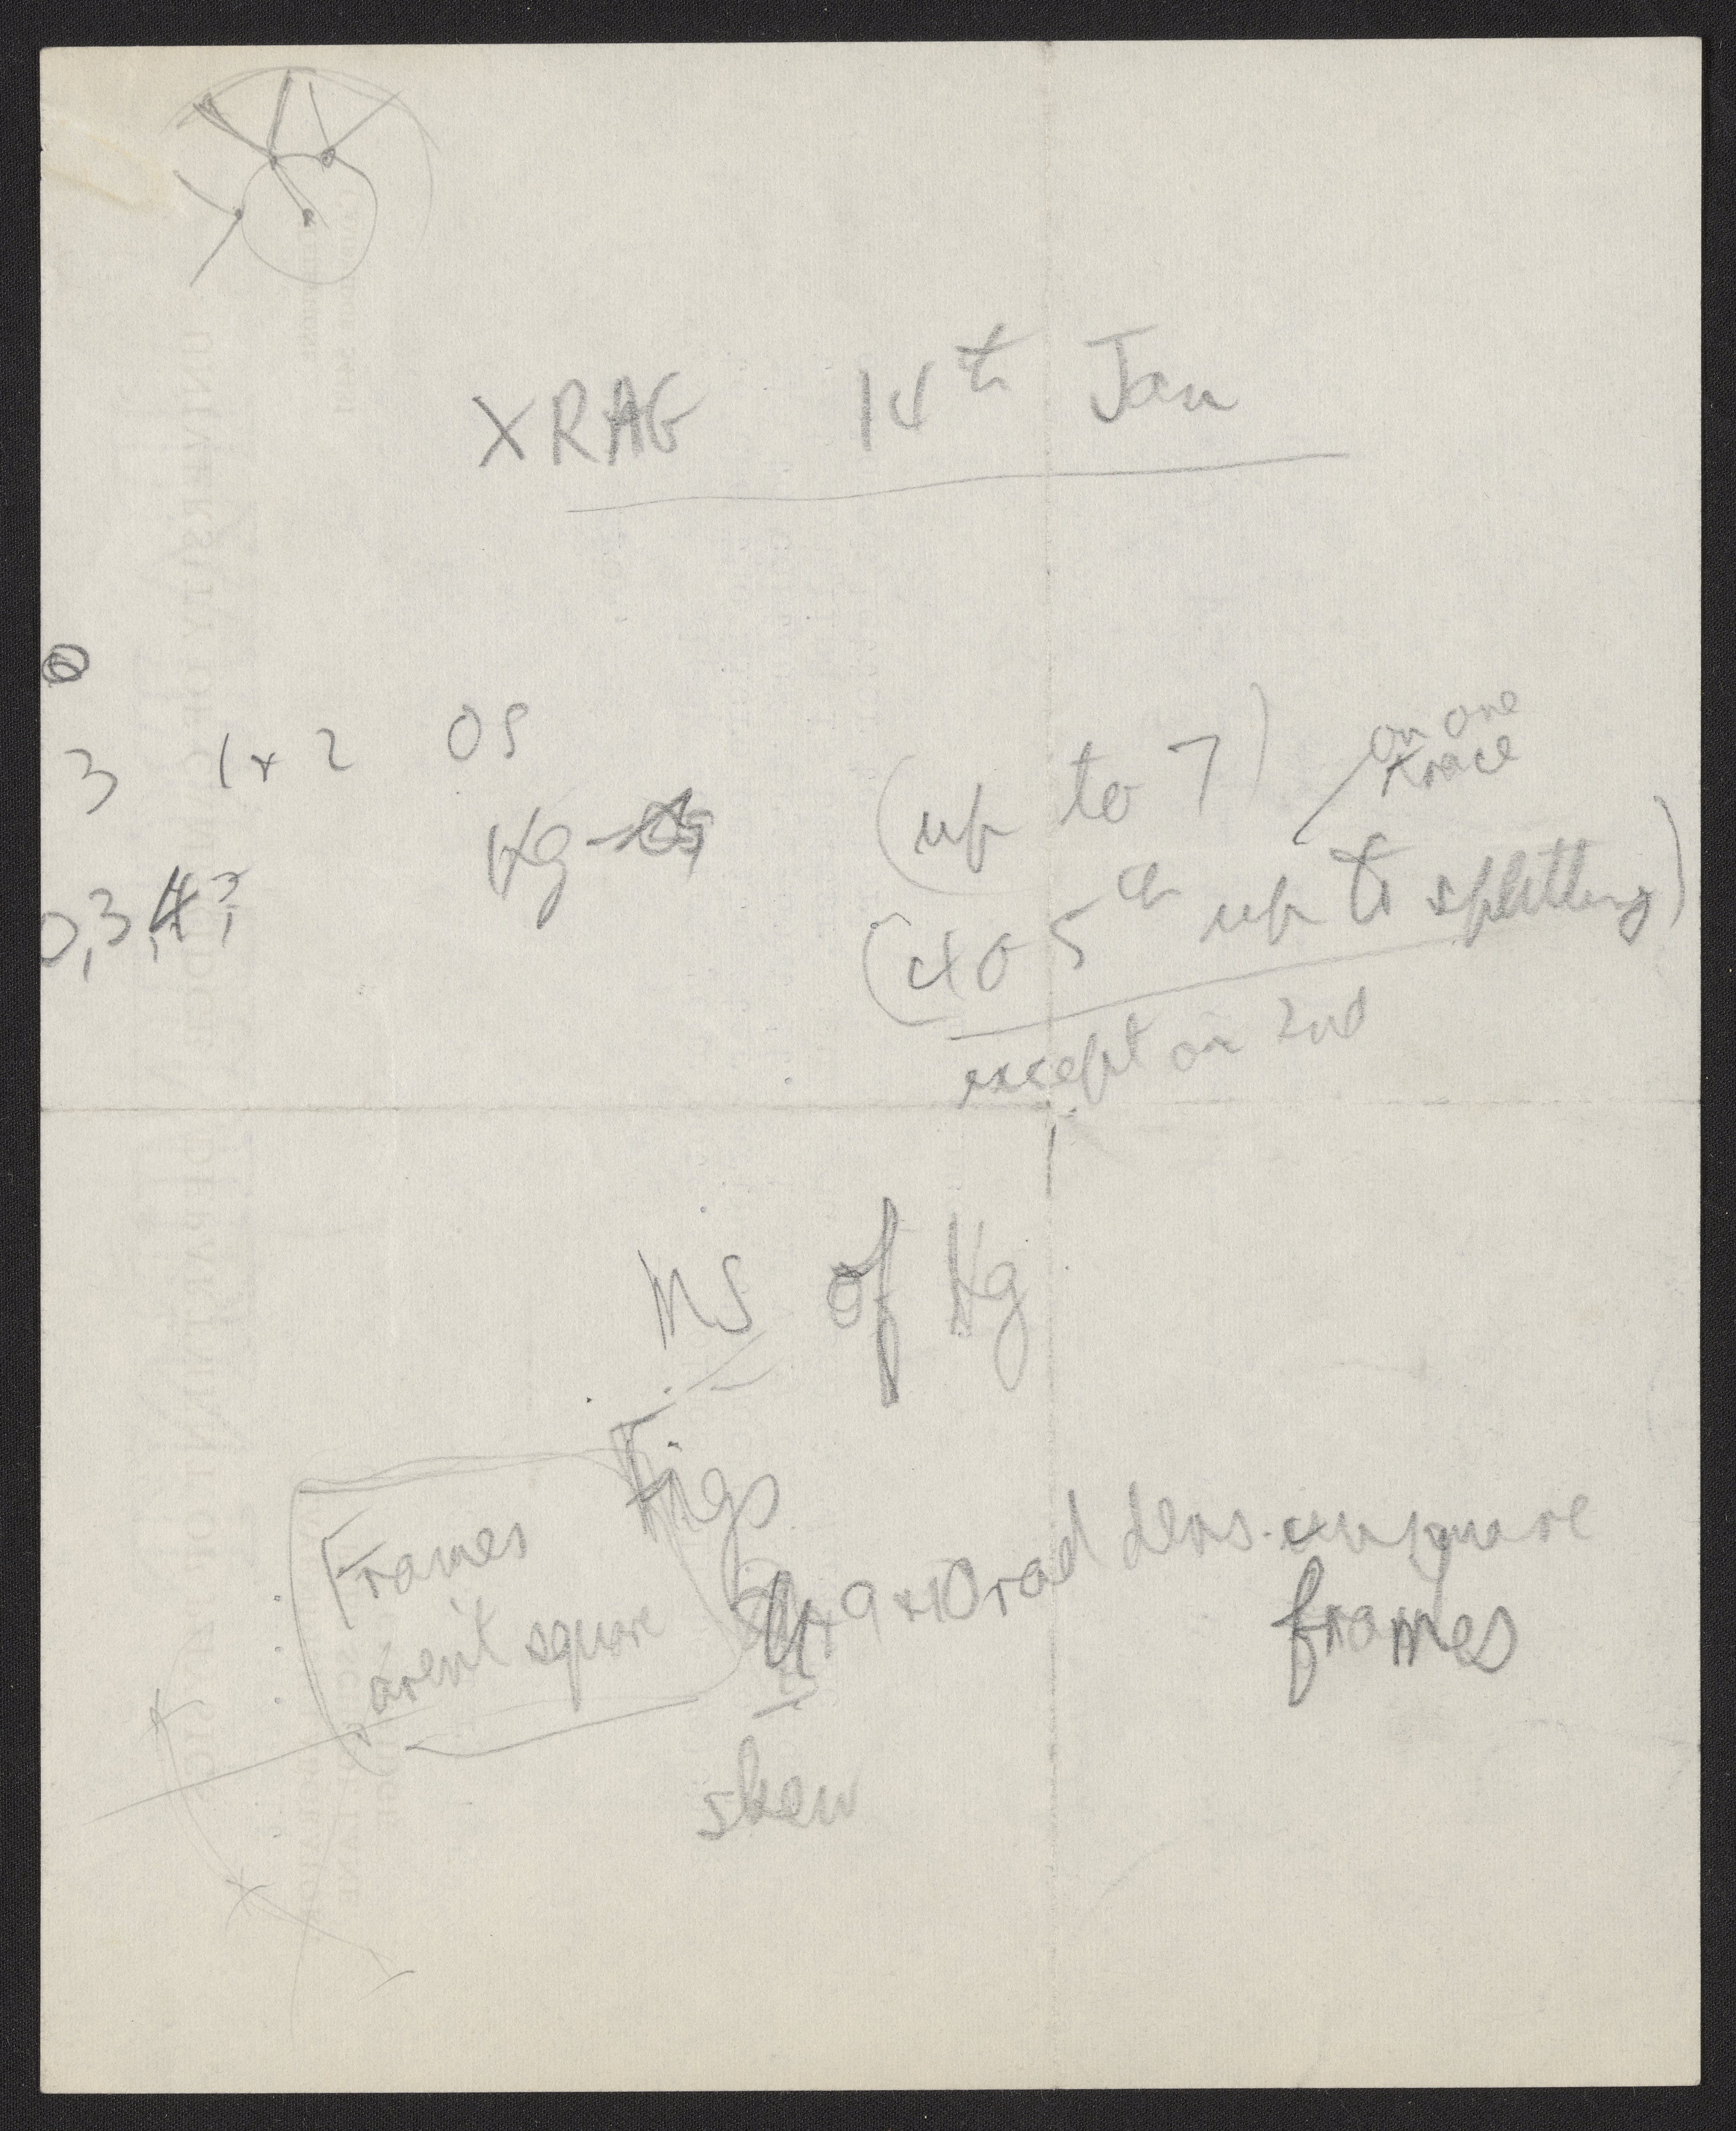 XRAG 14th Jan
3 1 + 2 Os
(up to 7)
on one
trace
Hg
0,3,4?
(4 o 5th up to splitting)
except on 2nd
MS of Hg
Figs
Frames
aren't square
9 + 10 rad dens. in square
frames
skew